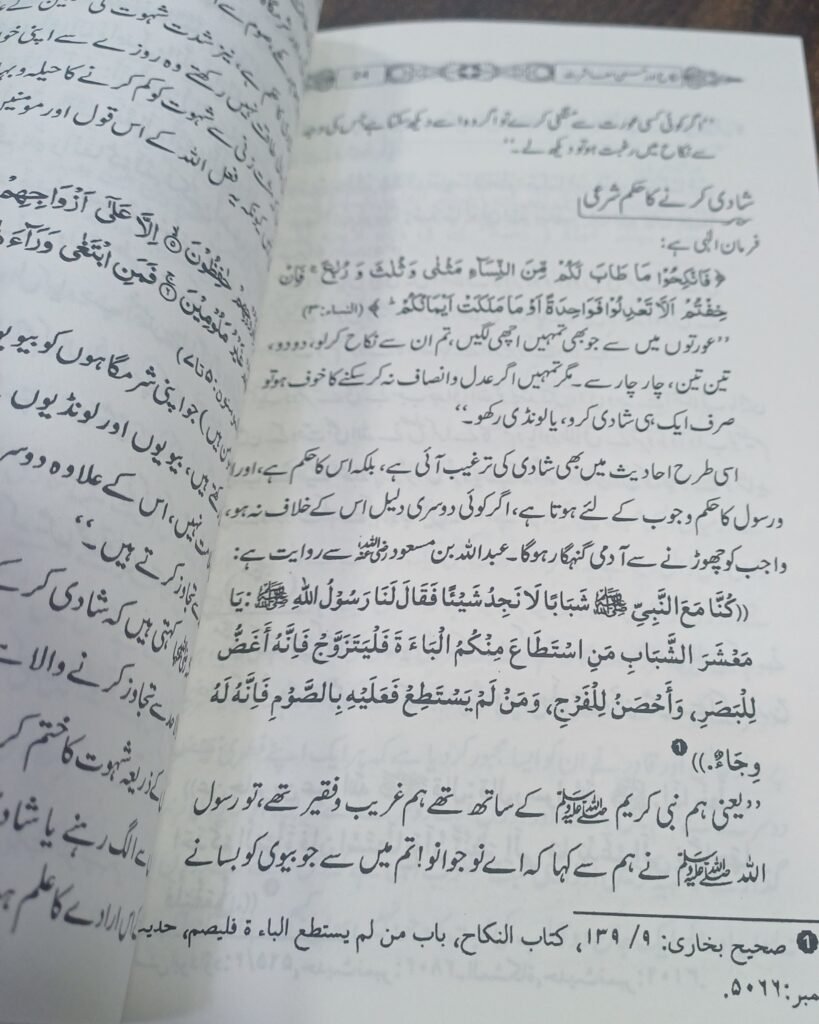 ”اگر کوئی کسی عورت سے منگنی کرے تو اگر وہ اسے دیکھ سکتا ہے جس کی وجہ
سے نکاح میں رغبت ہو تو دیکھ لے۔“
شادی کرنے کا حکم شرعی
فرمان الٰہی ہے:
﴿ فَانْكِحُوْا مَا طَابَ لَكُمْ مِّنَ النِّسَآءِ مَثْنٰى وَثُلٰثَ وَرُبٰعَ ۚ فَاِنْ
خِفْتُمْ اَلَّا تَعْدِلُوْا فَوَاحِدَةً اَوْ مَا مَلَكَتْ اَيْمَانُكُمْ ۗ ﴾ (النساء:۳)
”عورتوں میں سے جو بھی تمہیں اچھی لگیں، تم ان سے نکاح کر لو، دو دو،
تین تین، چار چار سے۔ مگر تمہیں اگر عدل و انصاف نہ کر سکنے کا خوف ہو تو
صرف ایک ہی شادی کرو، یا لونڈی رکھو۔“
اسی طرح احادیث میں بھی شادی کی ترغیب آئی ہے، بلکہ اس کا حکم ہے، اور
و رسول کا حکم وجوب کے لئے ہوتا ہے، اگر کوئی دوسری دلیل اس کے خلاف نہ ہو،
واجب کو چھوڑنے سے آدمی گنہگار ہوگا۔ عبداللہ بن مسعود رضی اللہ عنہ سے روایت ہے:
((كُنَّا مَعَ النَّبِيِّ ﷺ شَبَابًا لَا نَجِدُ شَيْئًا فَقَالَ لَنَا رَسُوْلُ اللهِ ﷺ: يَا
مَعْشَرَ الشَّبَابِ مَنِ اسْتَطَاعَ مِنْكُمُ الْبَاءَ ةَ فَلْيَتَزَوَّجْ فَإِنَّهُ أَغَضُّ
لِلْبَصَرِ، وَأَحْصَنُ لِلْفَرْجِ، وَمَنْ لَمْ يَسْتَطِعْ فَعَلَيْهِ بِالصَّوْمِ فَإِنَّهُ لَهُ
وِجَاءٌ.)) ❶
”یعنی ہم نبی کریم ﷺ کے ساتھ تھے ہم غریب و فقیر تھے، تو رسول
اللہ ﷺ نے ہم سے کہا کہ اے نوجوانو! تم میں سے جو بیوی کو بسانے
❶ صحیح بخاری: ۹/ ۱۳۹، کتاب النکاح، باب من لم یستطع الباء ة فلیصم، حدیث
مبر: ۵۰۶۶.
حٰفِظُوْنَ ۞ اِلَّا عَلٰٓى اَزْوَاجِهِمْ
مَلُوْمِيْنَ ۞ فَمَنِ ابْتَغٰى وَرَآءَ
جو اپنی شرمگاہوں کو بیویوں
ہیں، بیویوں اور لونڈیوں
نہیں، اس کے علاوہ دوسر
تجاوز کرتے ہیں۔“
کہتی ہیں کہ شادی کر کے
تجاوز کرنے والا ہے
کے ذریعہ شہوت کا ختم کر
الگ رہنے یا شاد
اس ارادے کا علم ہو